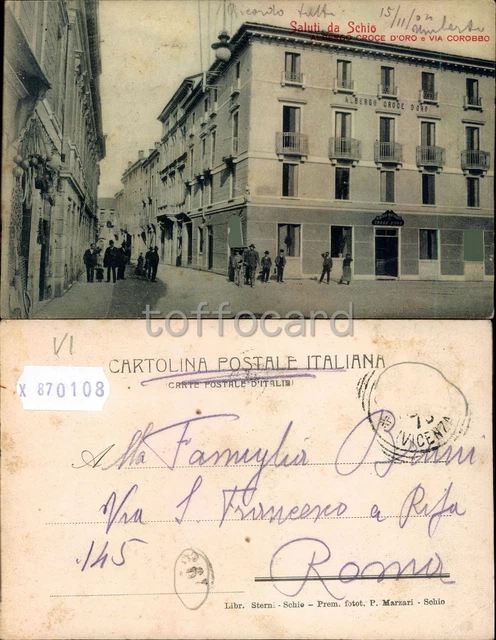 Ricordo tutti
15/11/04
Umberto
Saluti da Schio
CROCE D'ORO e VIA COROBBO
ALBERGO CROCE D'ORO
CROCE D'ORO
toffocard
VI
CARTOLINA POSTALE ITALIANA
CARTE POSTALE D'ITALIE
X 870108
(VICENZA)
Alla Famiglia
Via S. Francesco a Ripa
145
Roma
Libr. Sterni - Schio - Prem. fotot. P. Marzari - Schio